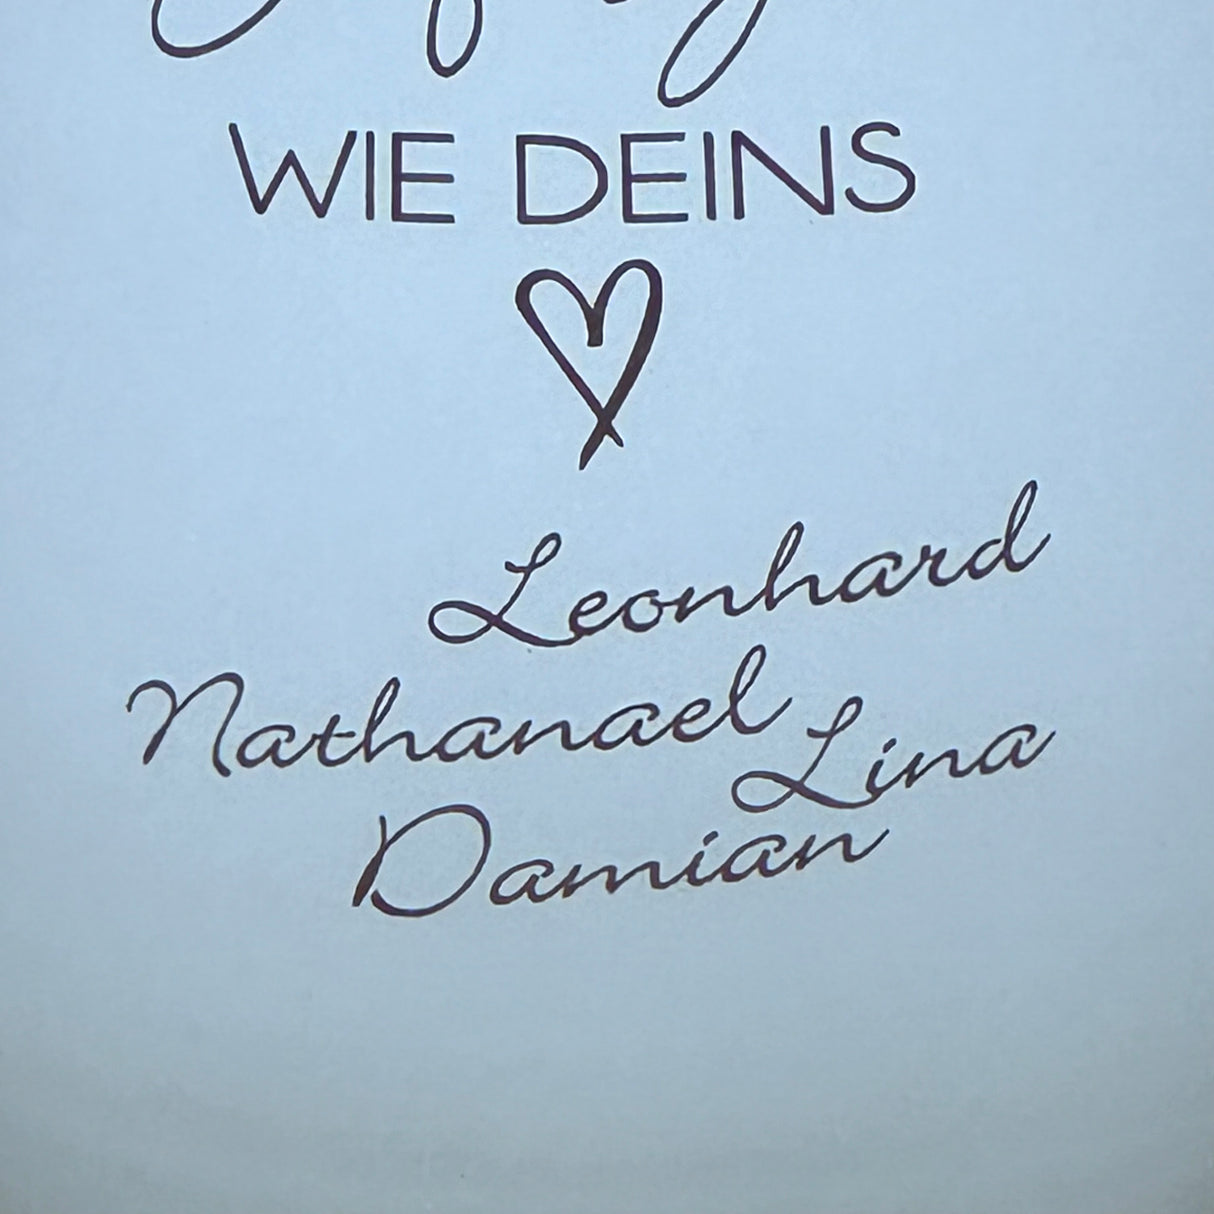 WIE DEINS
Leonhard
Nathanael
Lina
Damian